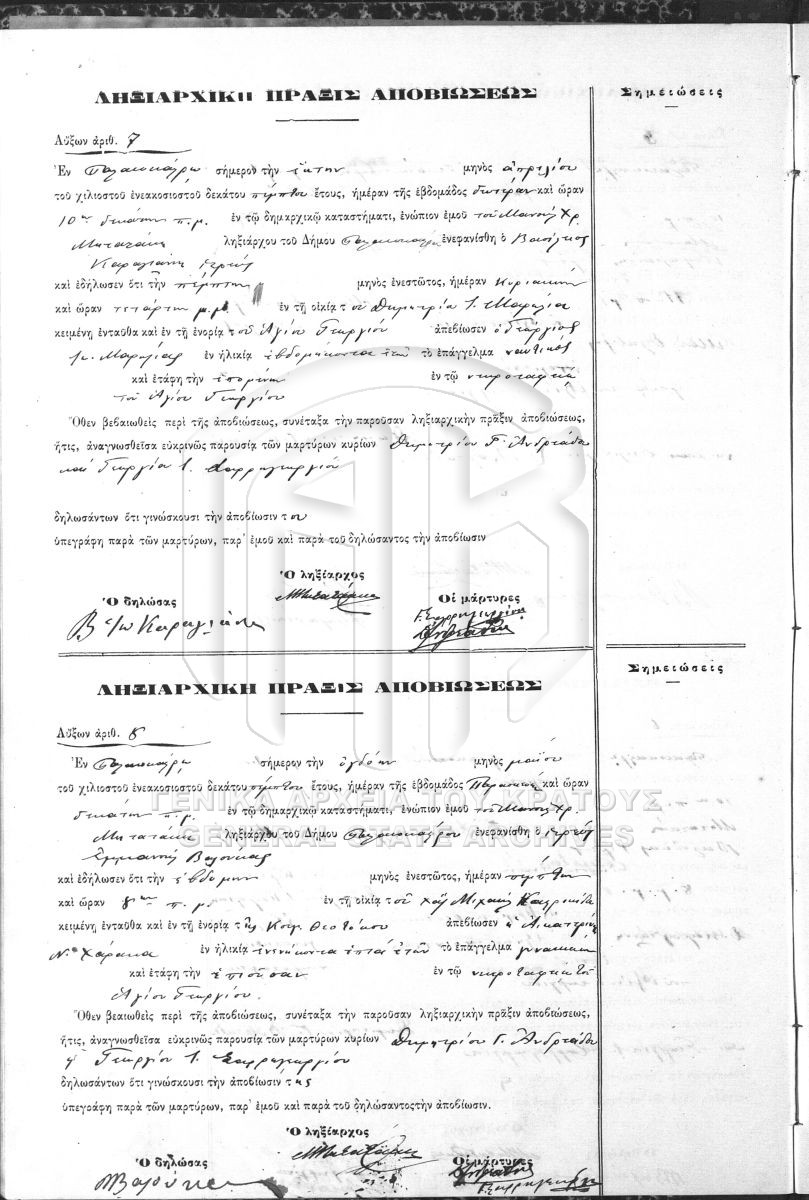 ΛΗΞΙΑΡΧΙΚΗ ΠΡΑΞΙΣ ΑΠΟΒΙΩΣΕΩΣ
Σημειώσεις
Αὔξων ἀριθ. 7
Ἐν σήμερον τὴν ἕκτην μηνὸς ἀπριλίου
τοῦ χιλιοστοῦ ἐνεακοσιοστοῦ δεκάτου πέμπτου ἔτους, ἡμέραν τῆς ἑβδομάδος δευτέραν καὶ ὥραν
10ην δεκάτην π.μ. ἐν τῷ δημαρχικῷ καταστήματι, ἐνώπιον ἐμοῦ τοῦ Μανουὴλ Χρ.
Μητατάκη ληξιάρχου τοῦ Δήμου ἐνεφανίσθη ὁ Βασίλειος
Καραγιάνης ἱερεὺς
καὶ ἐδήλωσεν ὅτι τὴν πέμπτην μηνὸς ἐνεστῶτος, ἡμέραν Κυριακὴν
καὶ ὥραν τετάρτην μ.μ. ἐν τῇ οἰκίᾳ τοῦ Δημητρίου
κειμένῃ ἐνταῦθα καὶ ἐν τῇ ἐνορίᾳ τοῦ Ἁγίου Γεωργίου ἀπεβίωσεν ὁ Γεώργιος
ἐν ἡλικίᾳ ἑβδομήκοντα ἐτῶν τὸ ἐπάγγελμα ναυτικὸς
καὶ ἐτάφη τὴν ἑπομένην ἐν τῷ νεκροταφείῳ
τοῦ Ἁγίου Γεωργίου
Ὅθεν βεβαιωθεὶς περὶ τῆς ἀποβιώσεως, συνέταξα τὴν παροῦσαν ληξιαρχικὴν πρᾶξιν ἀποβιώσεως,
ἥτις, ἀναγνωσθεῖσα εὐκρινῶς παρουσίᾳ τῶν μαρτύρων κυρίων Δημητρίου Γ. Ἀνδρεάδη
καὶ Γεωργίου Ι. Σαρρηγεωργίου
δηλωσάντων ὅτι γινώσκουσι τὴν ἀποβίωσιν του
ὑπεγράφη παρὰ τῶν μαρτύρων, παρ' ἐμοῦ καὶ παρὰ τοῦ δηλώσαντος τὴν ἀποβίωσιν
Ὁ ληξίαρχος
Ὁ δηλώσας Οἱ μάρτυρες
Καραγιάνης
ΛΗΞΙΑΡΧΙΚΗ ΠΡΑΞΙΣ ΑΠΟΒΙΩΣΕΩΣ
Σημειώσεις
Αὔξων ἀριθ. 8
Ἐν σήμερον τὴν ὀγδόην μηνὸς μαΐου
τοῦ χιλιοστοῦ ἐνεακοσιοστοῦ δεκάτου πέμπτου ἔτους, ἡμέραν τῆς ἑβδομάδος Παρασκευὴν καὶ ὥραν
δεκάτην π.μ. ἐν τῷ δημαρχικῷ καταστήματι, ἐνώπιον ἐμοῦ τοῦ Μανουὴλ Χρ.
Μητατάκη ληξιάρχου τοῦ Δήμου ἐνεφανίσθη ὁ ἱερεὺς
Ἐμμανουὴλ
καὶ ἐδήλωσεν ὅτι τὴν ἑβδόμην μηνὸς ἐνεστῶτος, ἡμέραν πέμπτην
καὶ ὥραν π.μ. ἐν τῇ οἰκίᾳ τοῦ χατζῆ Μιχαὴλ
κειμένῃ ἐνταῦθα καὶ ἐν τῇ ἐνορίᾳ τῆς Κοιμ. Θεοτόκου ἀπεβίωσεν ἡ Αἰκατερίνη
Ν. Χάρακα ἐν ἡλικίᾳ ἐνενήκοντα ἑπτὰ ἐτῶν τὸ ἐπάγγελμα
καὶ ἐτάφη τὴν ἐπιοῦσαν ἐν τῷ νεκροταφείῳ τοῦ
Ἁγίου Γεωργίου.
Ὅθεν βεαιωθεὶς περὶ τῆς ἀποβιώσεως, συνέταξα τὴν παροῦσαν ληξιαρχικὴν πρᾶξιν ἀποβιώσεως,
ἥτις, ἀναγνωσθεῖσα εὐκρινῶς παρουσίᾳ τῶν μαρτύρων κυρίων Δημητρίου Γ. Ἀνδρεάδη
Γεωργίου Ι. Σαρρηγεωργίου
δηλωσάντων ὅτι γινώσκουσι τὴν ἀποβίωσιν της
ὑπεγράφη παρὰ τῶν μαρτύρων, παρ' ἐμοῦ καὶ παρὰ τοῦ δηλώσαντος τὴν ἀποβίωσιν.
Ὁ ληξίαρχος
Ὁ δηλώσας Οἱ μάρτυρες
ΓΕΝΙΚΑ ΑΡΧΕΙΑ ΤΟΥ ΚΡΑΤΟΥΣ
GENERAL STATE ARCHIVES